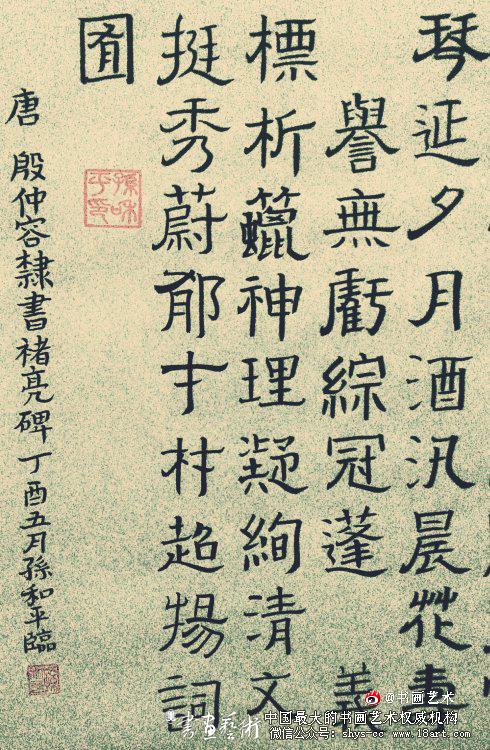 琴延夕月酒汎晨花
譽無虧綜冠蓬 義
標析蠟神理凝絢清文
挺秀蔚郁才材超楊詞
囿
唐 殷仲容隸書褚亮碑丁酉五月孫和平臨
孫和平印
@书画艺术
書畫藝術
中国最大的书画艺术权威机构
微信公众号：shys-cc www.18art.com